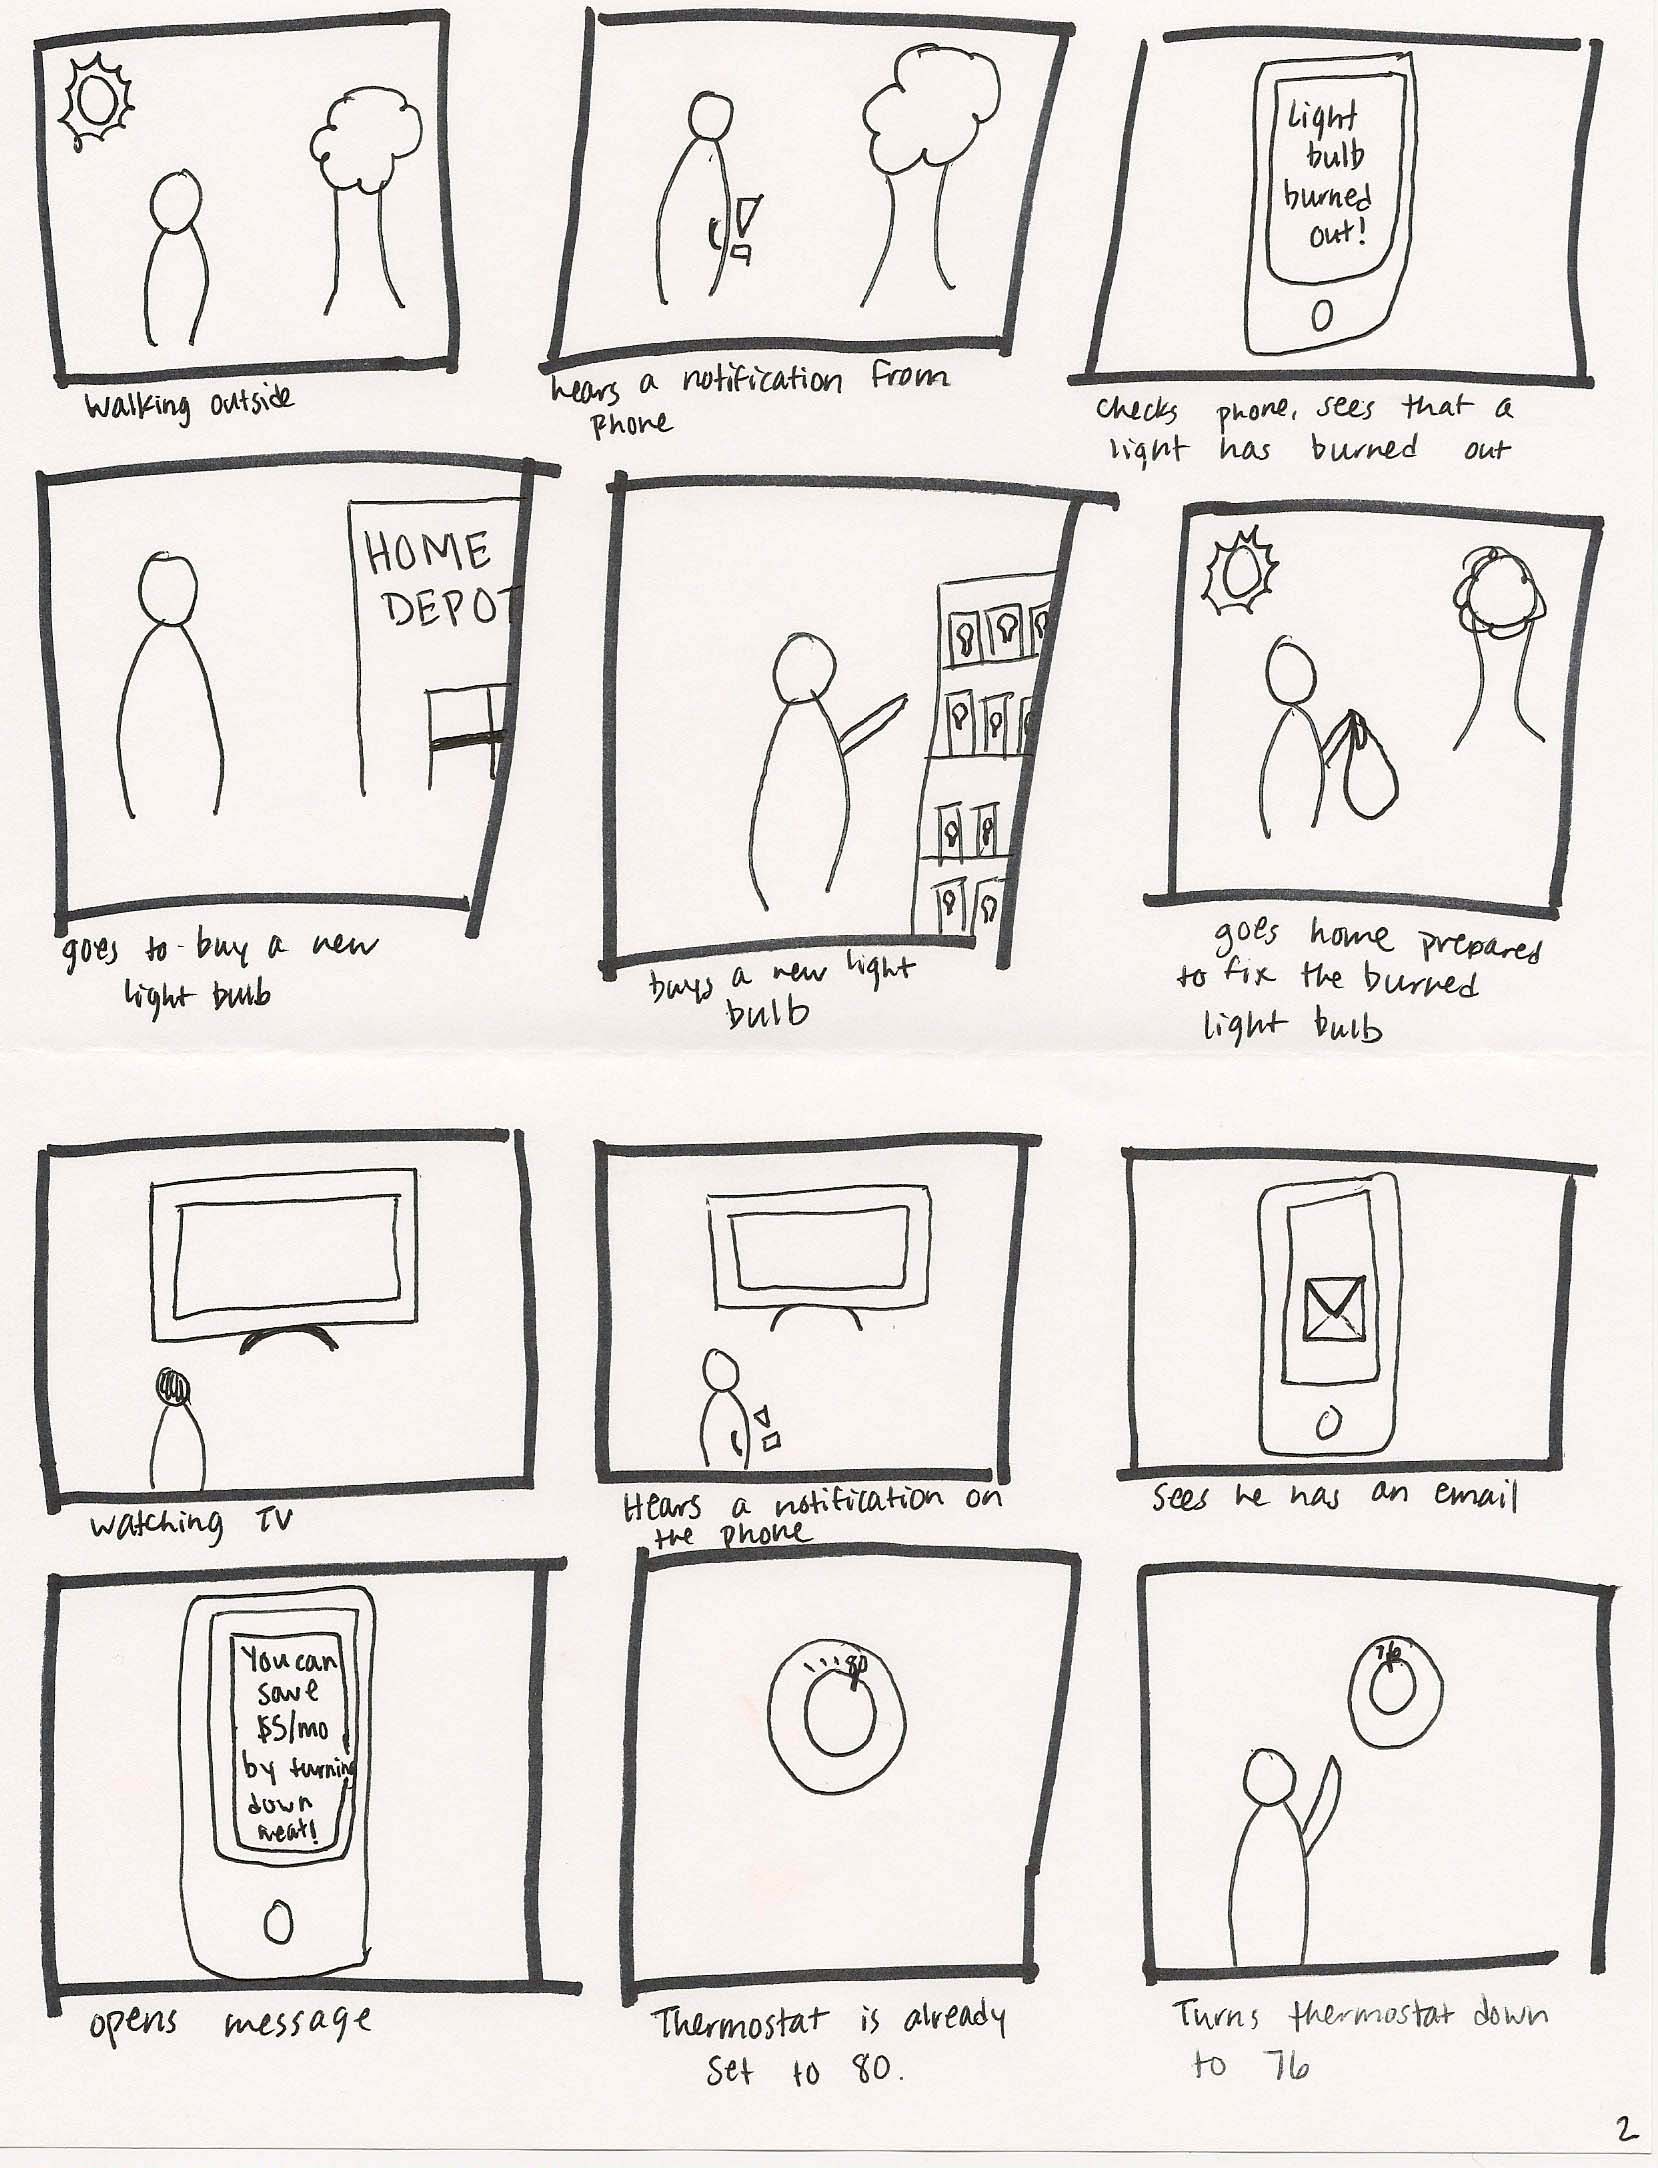 Light
bulb
burned
out!
Walking outside
hears a notification from
phone
checks phone, sees that a
light has burned out
HOME
DEPOT
goes to buy a new
light bulb
buys a new light
bulb
goes home prepared
to fix the burned
light bulb
watching TV
Hears a notification on
the phone
sees he has an email
You can
save
$5/mo
by turning
down
heat!
80
76
opens message
Thermostat is already
set to 80.
Turns thermostat down
to 76
2